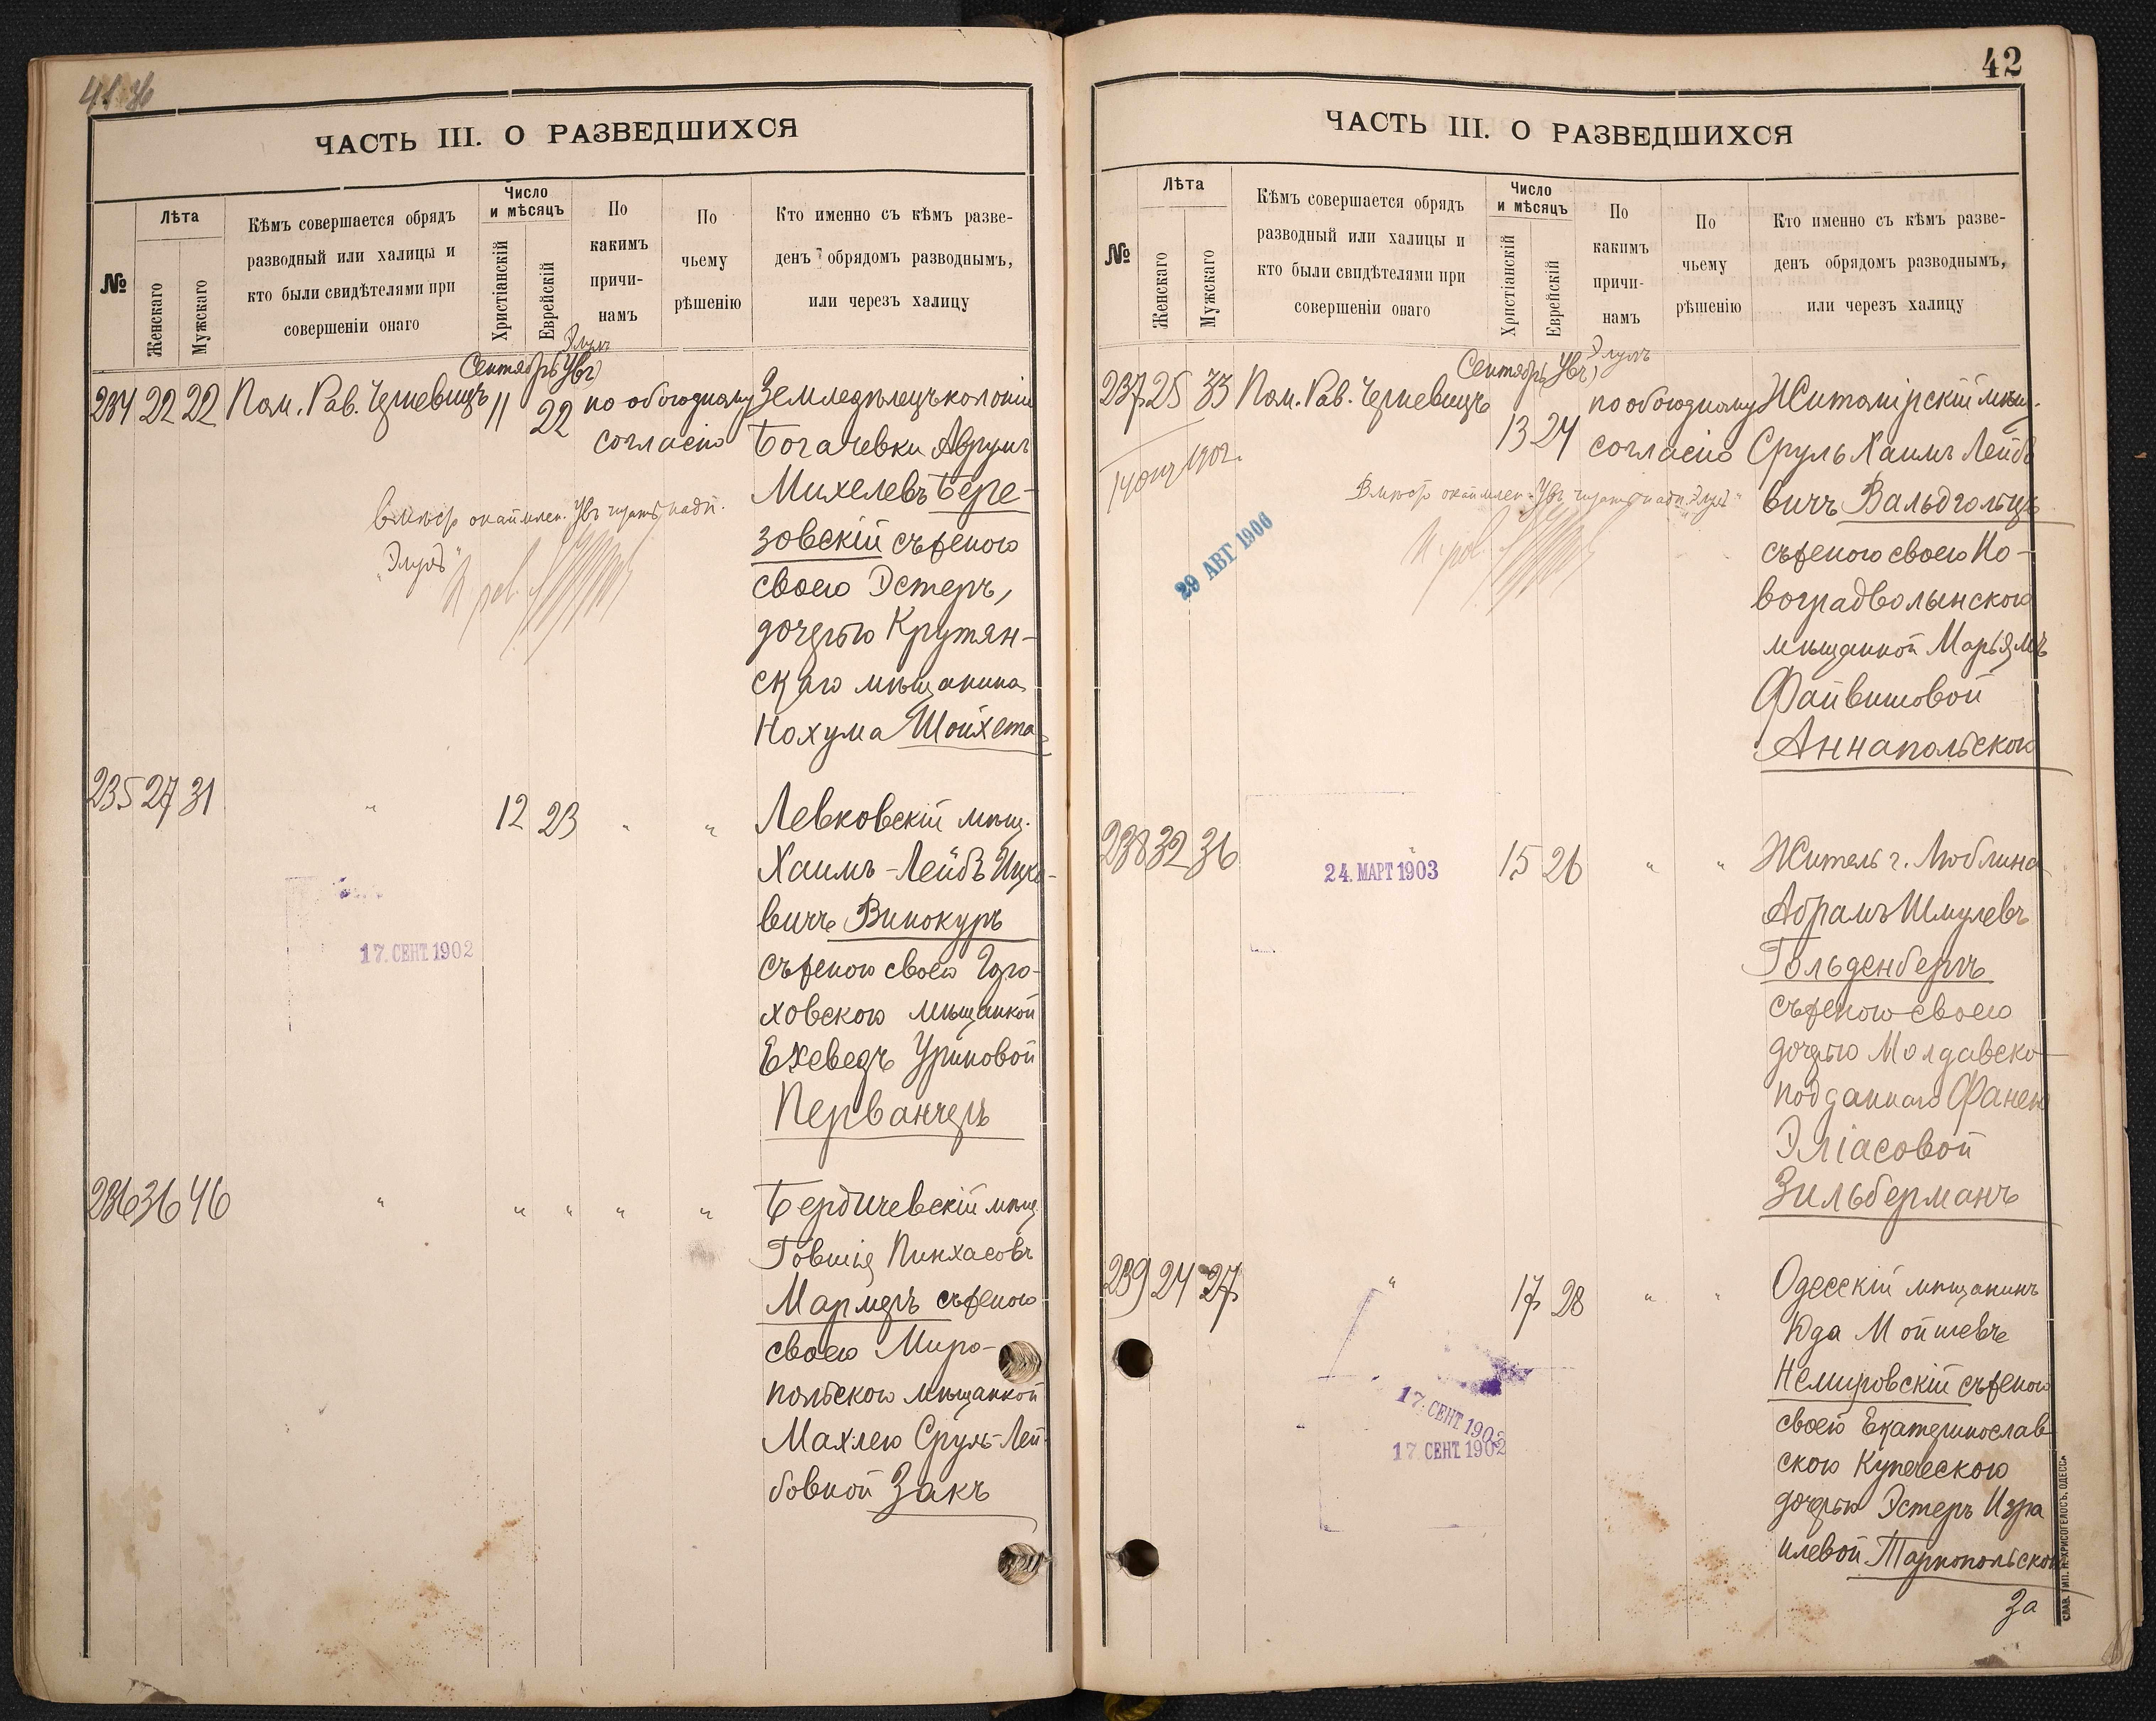 ЧАСТЬ III. О РАЗВЕДШИХСЯ
№
Лѣта
Женскаго
Мужскаго
Кѣмъ совершается обрядъ
разводный или халицы и
кто были свидѣтелями при
совершеніи онаго
Число
и мѣсяцъ
Христіанскій
Еврейскій
По
какимъ
причи-
намъ
По
чьему
рѣшенію
Кто именно съ кѣмъ разве-
денъ обрядомъ разводнымъ,
или черезъ халицу
Элулъ
Сентябрь
234 22 22 Пом. Рав. 11 22 по обоюдному
согласію
Земледѣлецъ колоніи
Богачевки Аврумъ
Михелевъ Бере-
зовскій съ женою
своею Эстеръ,
дочерью Крутян-
скаго мѣщанина
Нохума Шойхета
надп.
„Элулъ"
235 27 31 " 12 23 " "
Левковскій мѣщ.
Хаимъ-Лейбъ Ицко-
вичъ Винокуръ
съ женою своею Горо-
ховскою мѣщанкой
Ехеведъ
Перванчеръ
17. СЕНТ 1902
236 36 46 " " " " "
Бердичевскій мѣщ
Говшія Пинхасовъ
съ женою
своею Миро-
польскою мѣщанкой
Махлею Сруль-Лей-
бовной Закъ
42
ЧАСТЬ III. О РАЗВЕДШИХСЯ
№
Лѣта
Женскаго
Мужскаго
Кѣмъ совершается обрядъ
разводный или халицы и
кто были свидѣтелями при
совершеніи онаго
Число
и мѣсяцъ
Христіанскій
Еврейскій
По
какимъ
причи-
намъ
По
чьему
рѣшенію
Кто именно съ кѣмъ разве-
денъ обрядомъ разводнымъ,
или черезъ халицу
Элулъ
Сентябрь
237 25 33 Пом. Рав. 13 24 по обоюдному
согласію
Житомірскій мѣщ.
Сруль Хаимъ Лейбо
вичъ Вальдгольцъ
съ женою своею Но-
воградволынскою
мѣщанкой Марьямъ
Файвишовой
Аннапольскою
1902.
29 АВГ 1906
238 32 36 " 15 26 " "
24. МАРТ 1903
Житель г. Люблина
Абрамъ Шмулевъ
Гольденбергъ
съ женою своею
дочерью Молдавско-
подданнаго Фанею
Эліасовой
Зильберманъ
239 24 27 " 17 28 " "
Одесскій мѣщанинъ
Юда Мойшевъ
Немировскій съ женою
своею Екатеринослав
скою Купеческою
дочерью Эстеръ Изра
илевой Тарнопольской
17. СЕНТ 1902
17 СЕНТ. 1902
За